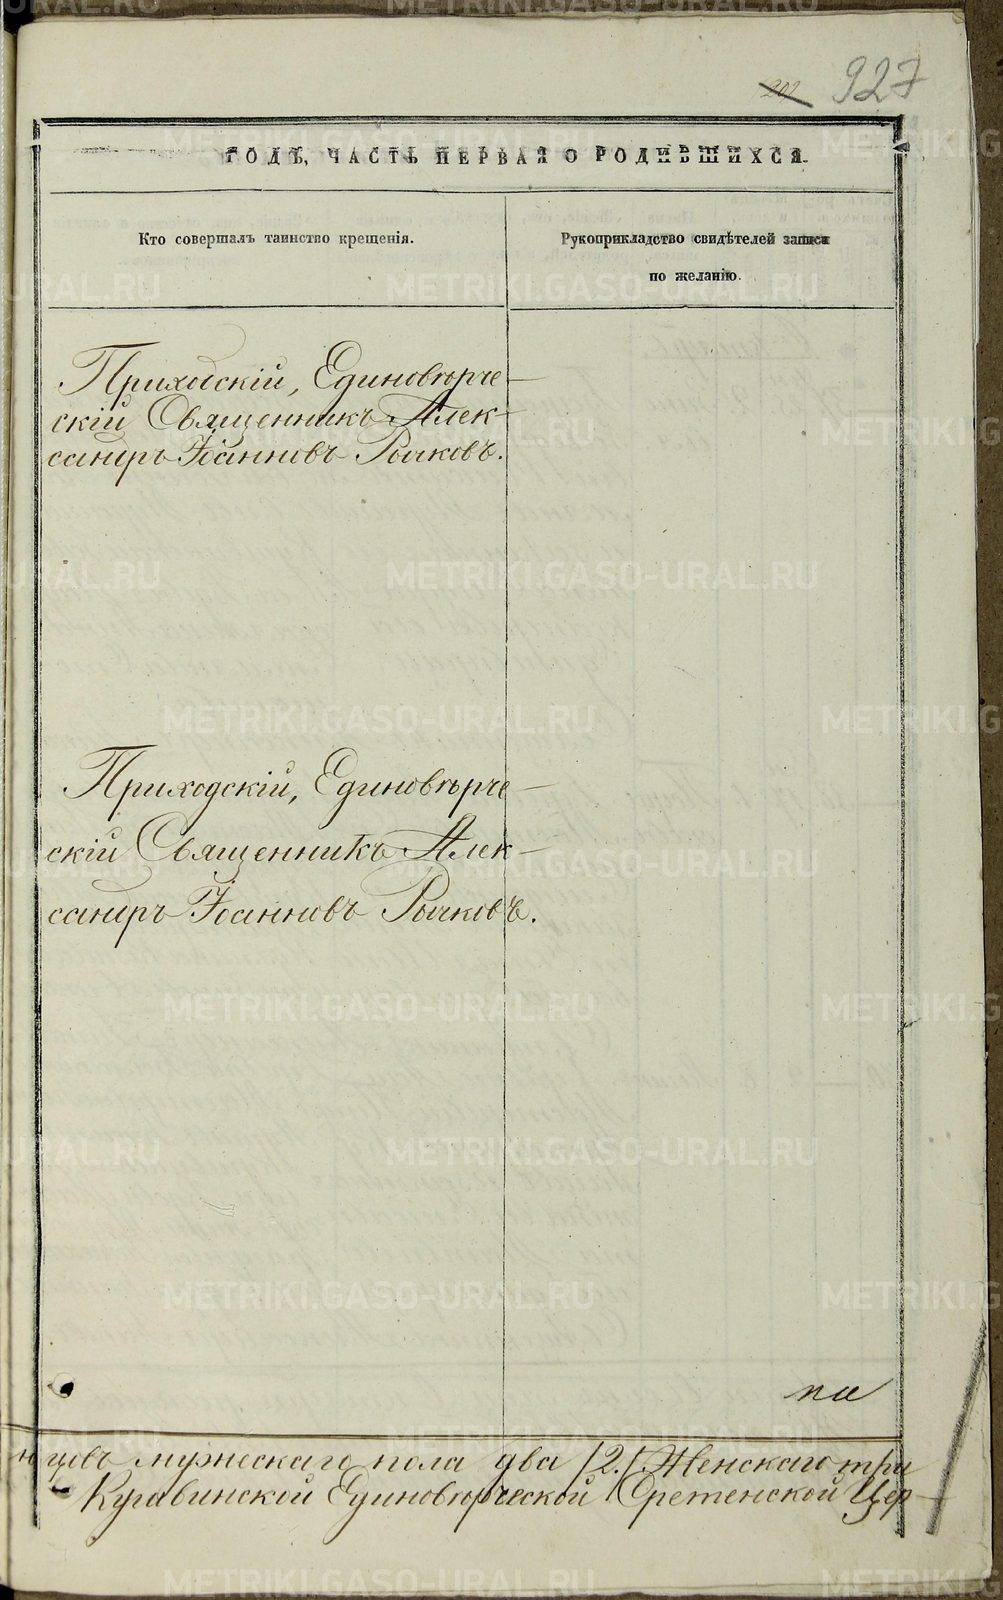 927
ГОДЪ, ЧАСТЬ ПЕРВАЯ О РОДИВШИХСЯ.
Кто совершалъ таинство крещенія.
Рукоприкладство свидѣтелей записи
по желанію.
Приходскій, Единовѣрче-
скій Священникъ Алек-
сандръ Іоанновъ Рычковъ.
Приходскій, Единовѣрче-
скій Священникъ Алек-
сандръ Іоанновъ Рычковъ.
на
нцовъ мужескаго пола два /2./ Женскаго три
Единовѣрческой Сретенской Цер-
METRIKI.GASO-URAL.RU